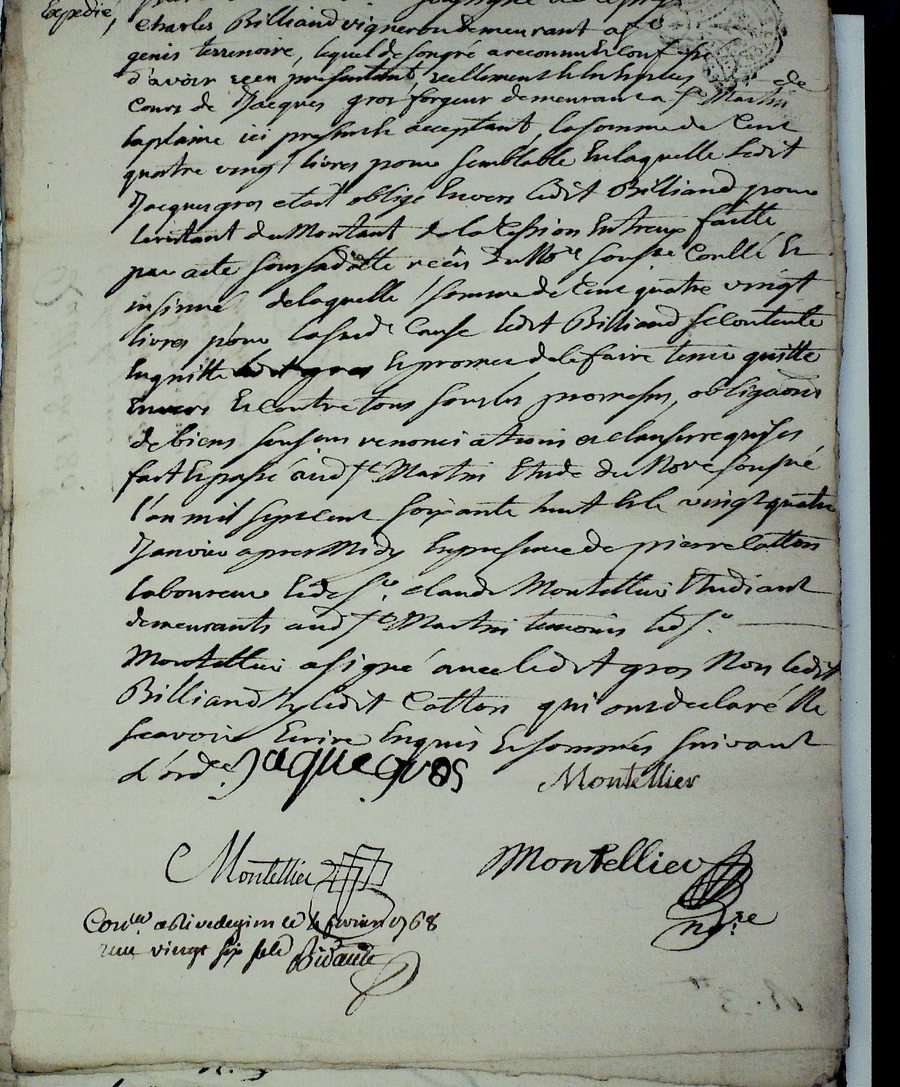 Expedié
Charles Billiand vigneron demeurant a St
genis terrenoire, lequel de son gré a reconnu et confessé
d'avoir reçu presentant reellement
cours de Jacques gros forgeur demeurant a St Martin
laplaine ici present et acceptant, la somme de Cent
quatre vingt livres pour semblable En laquelle Ledit
Jacques gros etoit obligé Envers Ledit Billiand pour
le restant du Montant de la Cession Entreux faitte
par acte sous sa datte reçû du Nore soussné Conllé Et
insinué de laquelle somme de Cent quatre vingt
livres pour la susde Cause ledit Billiand se contente
En quitte ledit gros Et promet de le faire tenir quitte
Envers Et contre tous sous les promesses, obligaons
de biens renonciations et clauses requises
fait Et passé aud St Martin Etude du Nore soussné
l'an mil sept cent soixante huit Et le vingt quatre
Janvier apres Midy En presence de pierre Catton
laboureur Et de sr. claude Montellier Etudiant
demeurants aud St Martin temoins led sr.
Montellier a signé avec ledit gros Non ledit
Billiand Ny ledit Catton qui ont declaré Ne
scavoir Ecrire Enquis Et sommés suivant
L'orde. Jaque gros Montellier
Montellier Montellier
nore
Conllé a Rivedegier le fevrier 1768
reçu vingt six sols Bidault